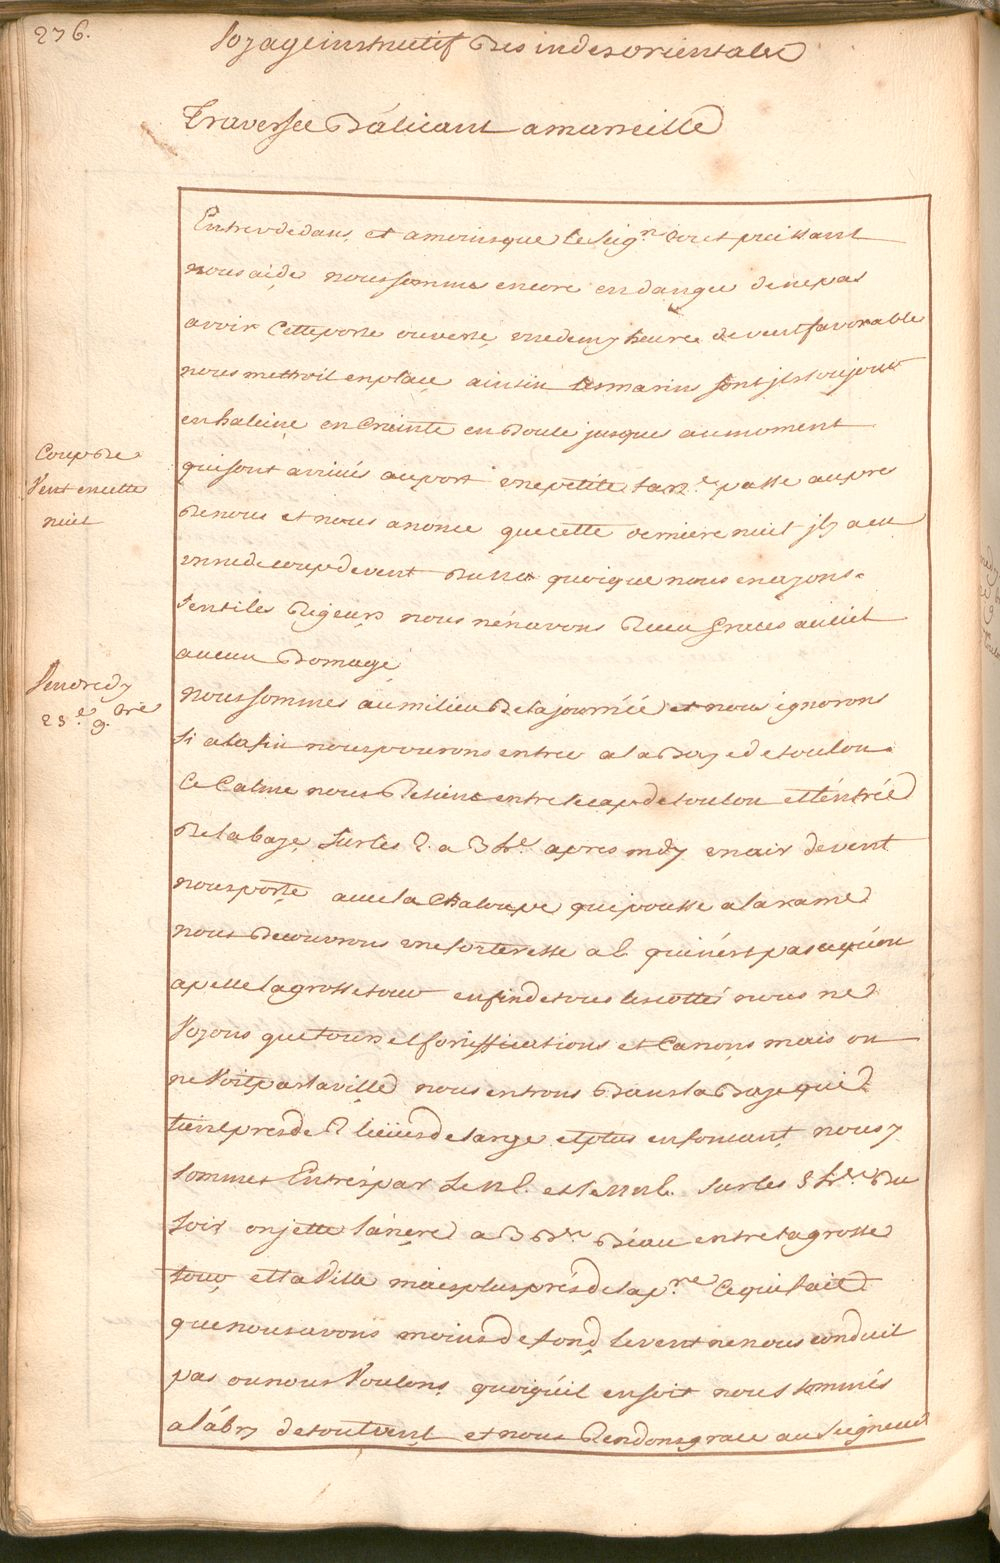 276.
Voyage instructif Des indes orientales
Traversée D'alicant a marseille
Entrer dedans, et amoins que le Seigr. tout puissant
nous aide nous sommes encore en danger de ne pas
avoir cette porte ouverte, une demy heure de vent favorable
nous mettroit en place ainsin les marins sont jls toujours
en haleine en Crainte en Doute jusques au moment
Coup de
Vent en cette
nuit
qui sont arivés au port une petite tarne. passe aupres
De nous et nous anonce que cette derniere nuit jl y a eu
un rude coup de vent Du no quoique nous en ayons
senti les Rigeurs nous n'en avons Receu Graces au ciel
aucun Domage
Vendredy
23.e 9.bre
Nous sommes au milieu De la journée et nous ignorons
si a la fin nous pourons entrer a la Baye de toulon.
Ce Calme nous Retient entre le cap de toulon et l'éntrée
De la baye, Sur les 2. a 3 hes. apres midy un air de vent
nous porte avec la Chaloupe qui pousse a la rame
nous Decouvrons une forteresse a l. qui n'est pas ce qu'on
apelle la grosse tour en fin de tous les cottés nous ne
Voyons que tours et fortiffications et Canons mais on
ne Voit pas la ville nous entrons Dans la Baye qui
tient pres de 2 lieües de large et plus en fonçant, nous y
sommes Entrés par Le nl. et le nnl. Sur les 5 hes. Du
soir on jette l'ancre a 3 Bes. D'éau entre la grosse
tour, et la Ville mais plus près de la pre. Ce qui fait
que nous avons moins de fond, le vent ne nous conduit
pas ou nous Voulons, quoiqu'il en soit nous sommes
a l'ábry de tout vent et nous Rendons grace au Seigneur